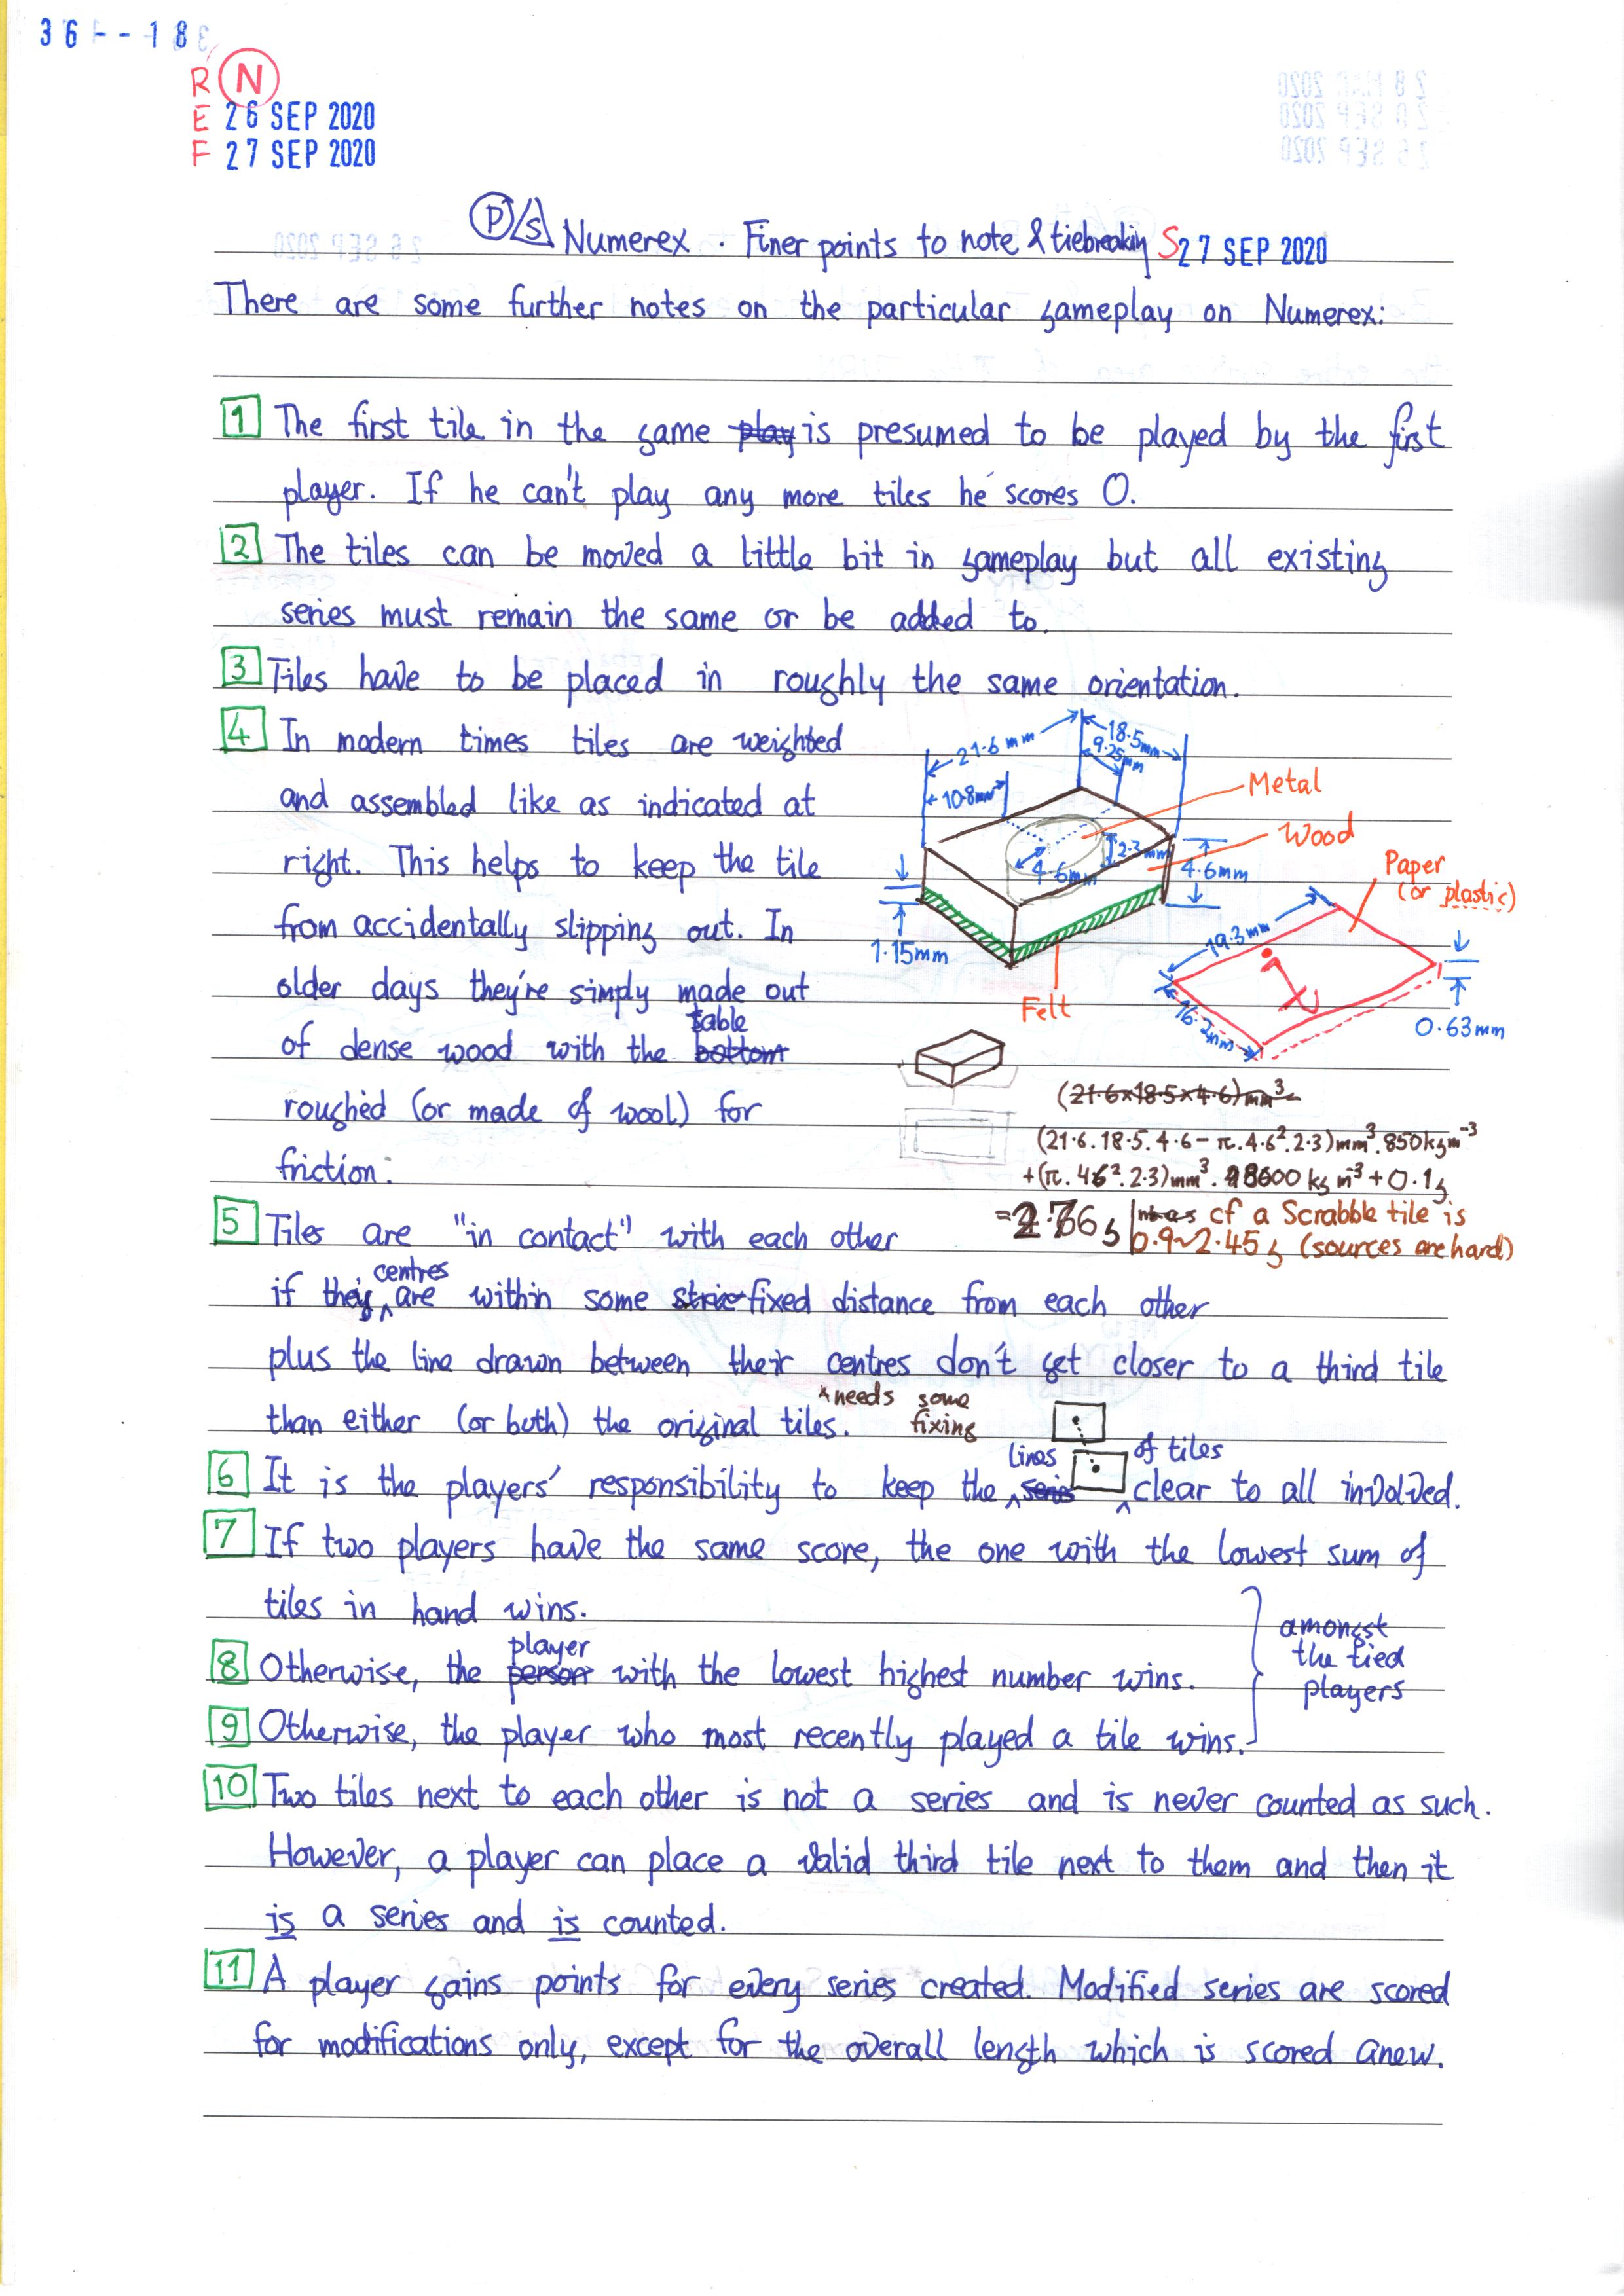 36--18
R N
E 26 SEP 2020
F 27 SEP 2020
P/S Numerex. Finer points to note & tiebreaking S 27 SEP 2020
There are some further notes on the particular gameplay on Numerex:
1 The first tile in the game play is presumed to be played by the first
player. If he can't play any more tiles he scores 0.
2 The tiles can be moved a little bit in gameplay but all existing
series must remain the same or be added to.
3 Tiles have to be placed in roughly the same orientation.
4 In modern times tiles are weighted
and assembled like as indicated at
right. This helps to keep the tile
from accidentally slipping out. In
older days they're simply made out
of dense wood with the bottom table
roughed (or made of wool) for
friction.
21.6 mm
18.5mm
9.25mm
10.8mm
Metal
Wood
2.3mm
4.6mm
4.6mm
1.15mm
Felt
Paper
(or plastic)
19.3mm
16.2mm
0.63mm
(21.6×18.5×4.6)mm³
(21.6.18.5.4.6-π.4.6².2.3)mm³.850kgm⁻³
+(π.4.6².2.3)mm³. 8600 kg m⁻³+0.1g
=2.76g
cf a Scrabble tile is
0.9~2.45g (sources are hard)
5 Tiles are "in contact" with each other
if their centres are within some fixed distance from each other
plus the line drawn between their centres don't get closer to a third tile
than either (or both) the original tiles. *needs some
fixing
6 It is the players' responsibility to keep the series lines of tiles clear to all involved.
7 If two players have the same score, the one with the lowest sum of
tiles in hand wins.
8 Otherwise, the person player with the lowest highest number wins.
9 Otherwise, the player who most recently played a tile wins.
amongst
the tied
players
10 Two tiles next to each other is not a series and is never counted as such.
However, a player can place a valid third tile next to them and then it
is a series and is counted.
11 A player gains points for every series created. Modified series are scored
for modifications only, except for the overall length which is scored anew.